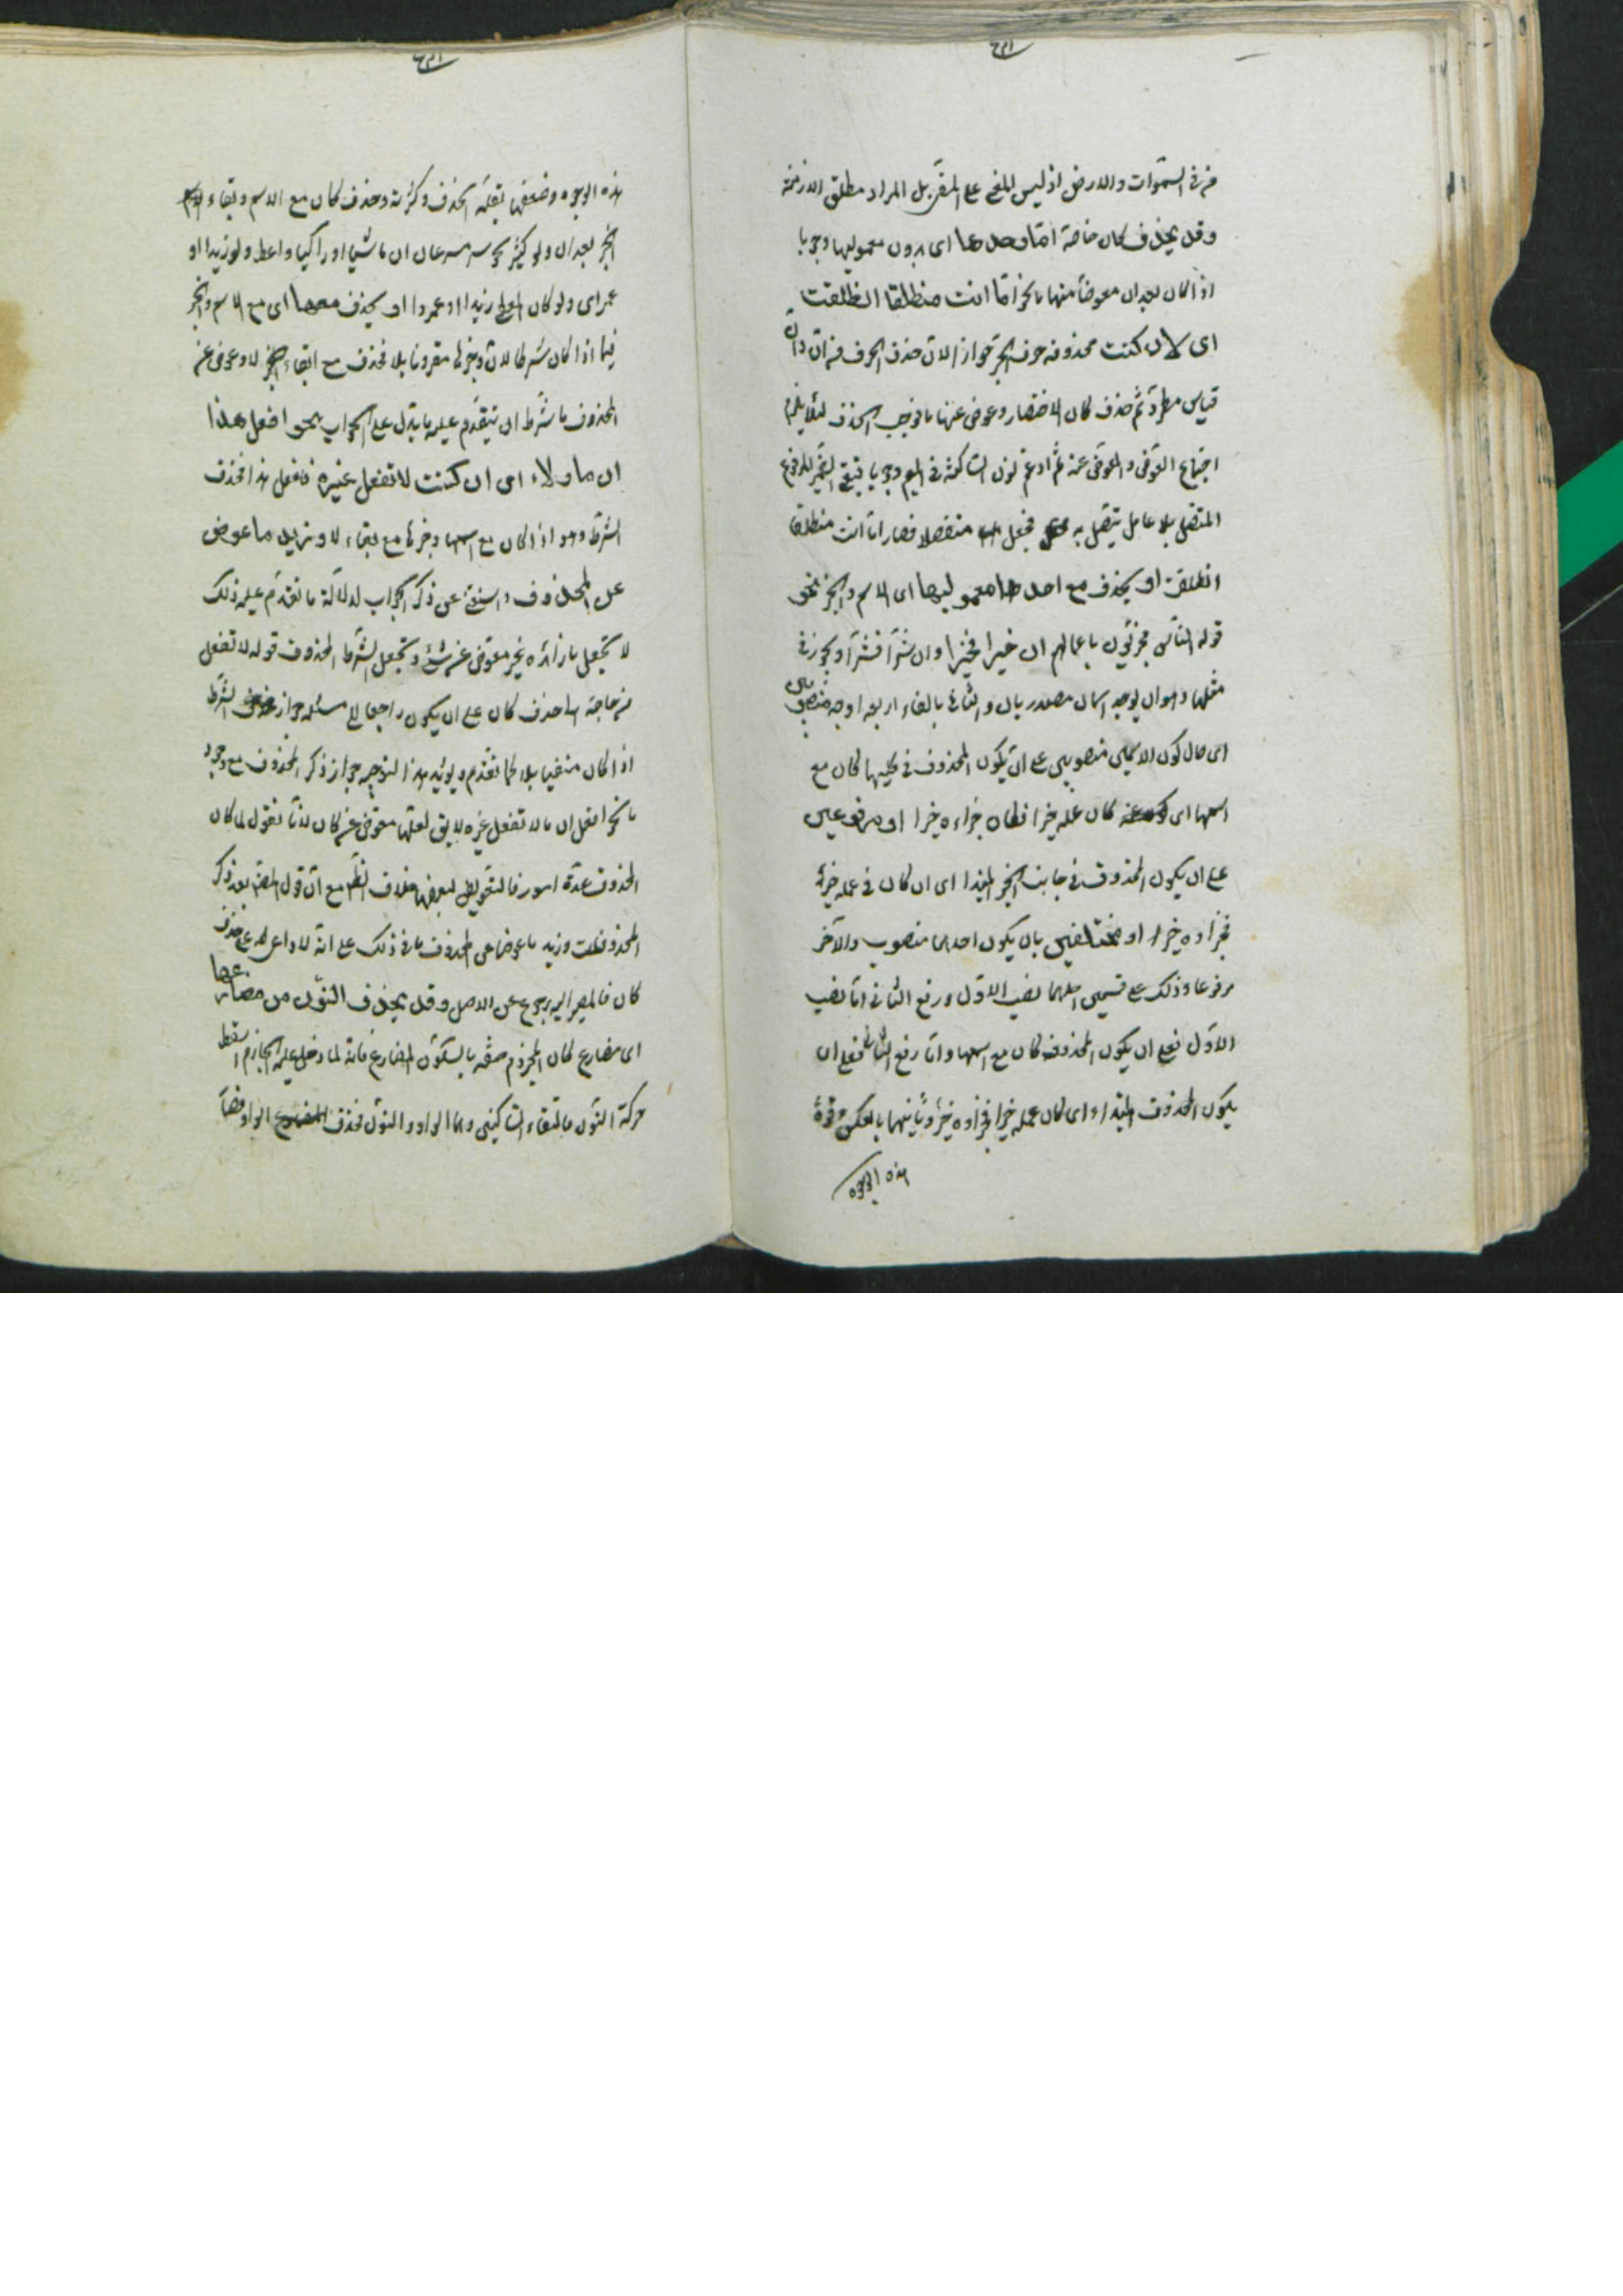 من في السموات والارض اذ ليس المضي على المضي بل المراد مطلق الازمنة
وقد يحذف كان خاصة اما وحدها اى بدون معموليها وجوبا
اذا كان بعد ان معوضا منها ما نحو اما انت منطلقا انطلقت
اى لان كنت محذوفه حرف الجر جوازا لان حذف الحرف من ان وان
قياس مطرد ثم حذف كان للاختصار وعوض عنها ما فوجب الحذف لئلا يلزم
اجتماع العوض والمعوض عنه ثم ادغم نون الساكنة في الميم وجوبا فبقي الضمير المرفوع
المتصل بلا عامل يتصل به فجعل منفصلا فصار اما انت منطلقا
انطلقت او يحذف مع احد معموليها اى الاسم والخبر نحو
قوله الناس مجزيون باعمالهم ان خيرا فخيرا وان شرا فشرا ويجوز في
مثلها وهو ان يوجد اسمان مصدر بان والثاني بالفاء اربعة اوجه منصوبين
اى حال كون الاسمين منصوبين على ان يكون المحذوف في كليهما كان مع
اسمها اى كان عمله خيرا فكان جزاءه خيرا او مرفوعين
على ان يكون المحذوف في جانب الخبر المبتدا اى ان كان في عمله خير
فجزاوه خير او مختلفين بان يكون احدهما منصوب والآخر
مرفوعا وذلك على قسمين احدهما نصب الاول ورفع الثاني اما نصب
الاول فعلى ان يكون المحذوفه كان مع اسمها واما رفع الثاني فعلى ان
يكون المحذوف المبتداء اى كان عمله خيرا فجزاوه خير وثانيهما بالعكس وقوة
هذه الوجوه
هذه الوجوه وضعفها بقلة الحذف وكثرته وحذف كان مع الاسم وبقاء
الخبر بعد ان ولو كثير نحو سر مسرعا ان ماشيا او راكبا واعط ولو زيدا او
عمرا اى ولو كان المعطى زيدا او عمروا او يحذف معهما اى مع الاسم والخبر
فيما اذا كان شرطا لان وخبرها مقرونا بلا فحذف مع ابقاء لا وعوض عن
المحذوف ما شرط ان يتقدم عليه ما يدل على الجواب نحو افعل هذا
ان ما ولا اى ان كنت لا تفعل غيره فافعل هذا فحذف
الشرط وهو اذ كان مع اسمها وخبرها مع بقاء لا ونزيد ما عوض
عن المحذوف واستغنى عن ذكر الجواب لدلالة ما تقدم عليه ذلك
لا تجعل ما زائدة غير معوض عن شئ وتجعل الشرط المحذوف قوله لا تفعل
من حاجة الى حذف كان على ان يكون راجعا الى مسئلة جواز حذف الشرط
اذا كان منفيا بلا كما تقدم ويؤيد هذا التوجيه جواز ذكر المحذوف مع وجود
ما نحو افعل ان ما لا تفعل غيره لا يق لعلها معوض عن كان لانا نقول لما كان
المحذوف عدة امور فالتعويض لبعضها خلاف الظم مع ان قول المص بعد ذكر
المحذوفات وزيد ما عوضا عن المحذوف مناف ذلك على انه لا داعى له على حذف
كان فالمصير اليه رجوع عن الاصل وقد يحذف النون من مضارعها
اى مضارع كان المجزوم صفه بالسكون لمضارع فانه لما دخل عليه الجازم اسقط
حركة النون فالتقاء الساكنين وهما الواو والنون فحذف الواو